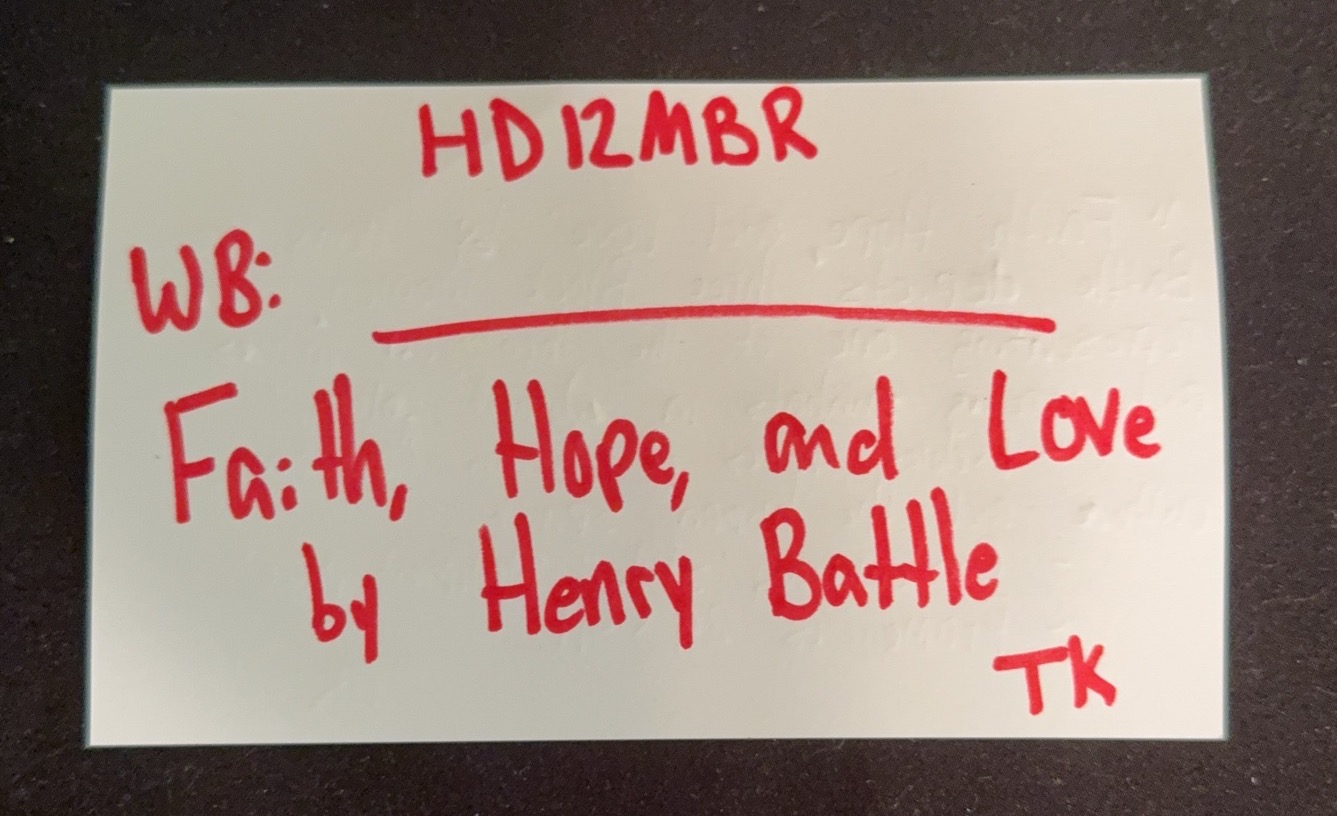 HD12MBR
WB:
Faith, Hope, and Love
by Henry Battle
TK